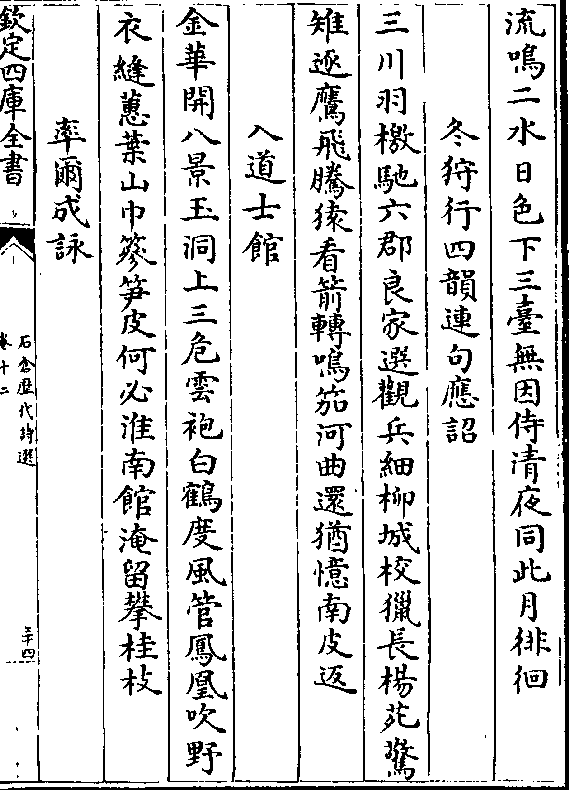 流鳴二水日色下三臺無因侍清夜同此月徘徊
冬狩行四韻連句應詔
三川羽檄馳六郡良家選觀兵細柳城校獵長楊苑驚
雉逐鷹飛騰猿看箭轉鳴笳河曲還猶憶南皮返
入道士館
金華開八景玉洞上三危雲袍白鶴度風管鳳凰吹野
衣縫蕙葉山巾篸笋皮何必淮南館淹留攀桂枝
率爾成詠
欽定四庫全書
石倉歷代詩選
卷十二
三十四